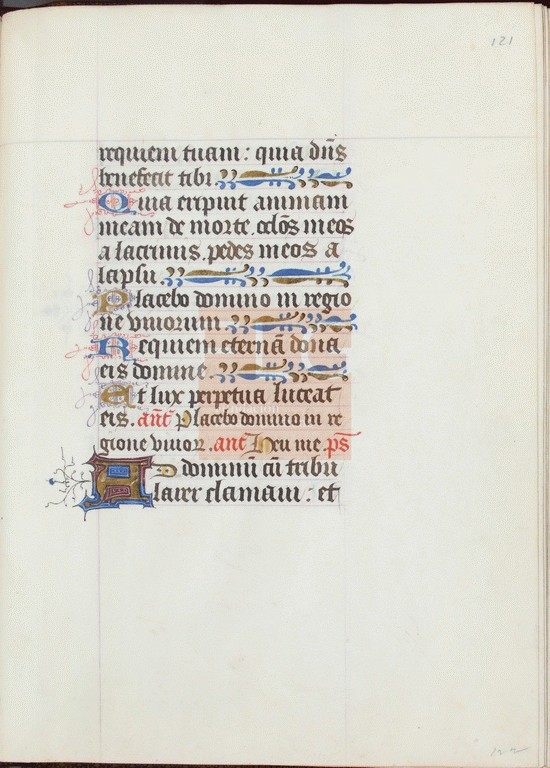 121
requiem tuam : quia dn̄s
benefecit tibi
Quia eripuit animam
meam de morte . oclōs meos
a lacrimis . pedes meos a
lapsu .
Placebo domino in regio
ne vivorum
Requiem eternā dona
eis domine .
Et lux perpetua luceat
eis . ant̄ Placebo domino in re
gione vivoꝝ . ant̄ Heu me . ps̄
AD dominū cū tribu
larer clamavi : et
122